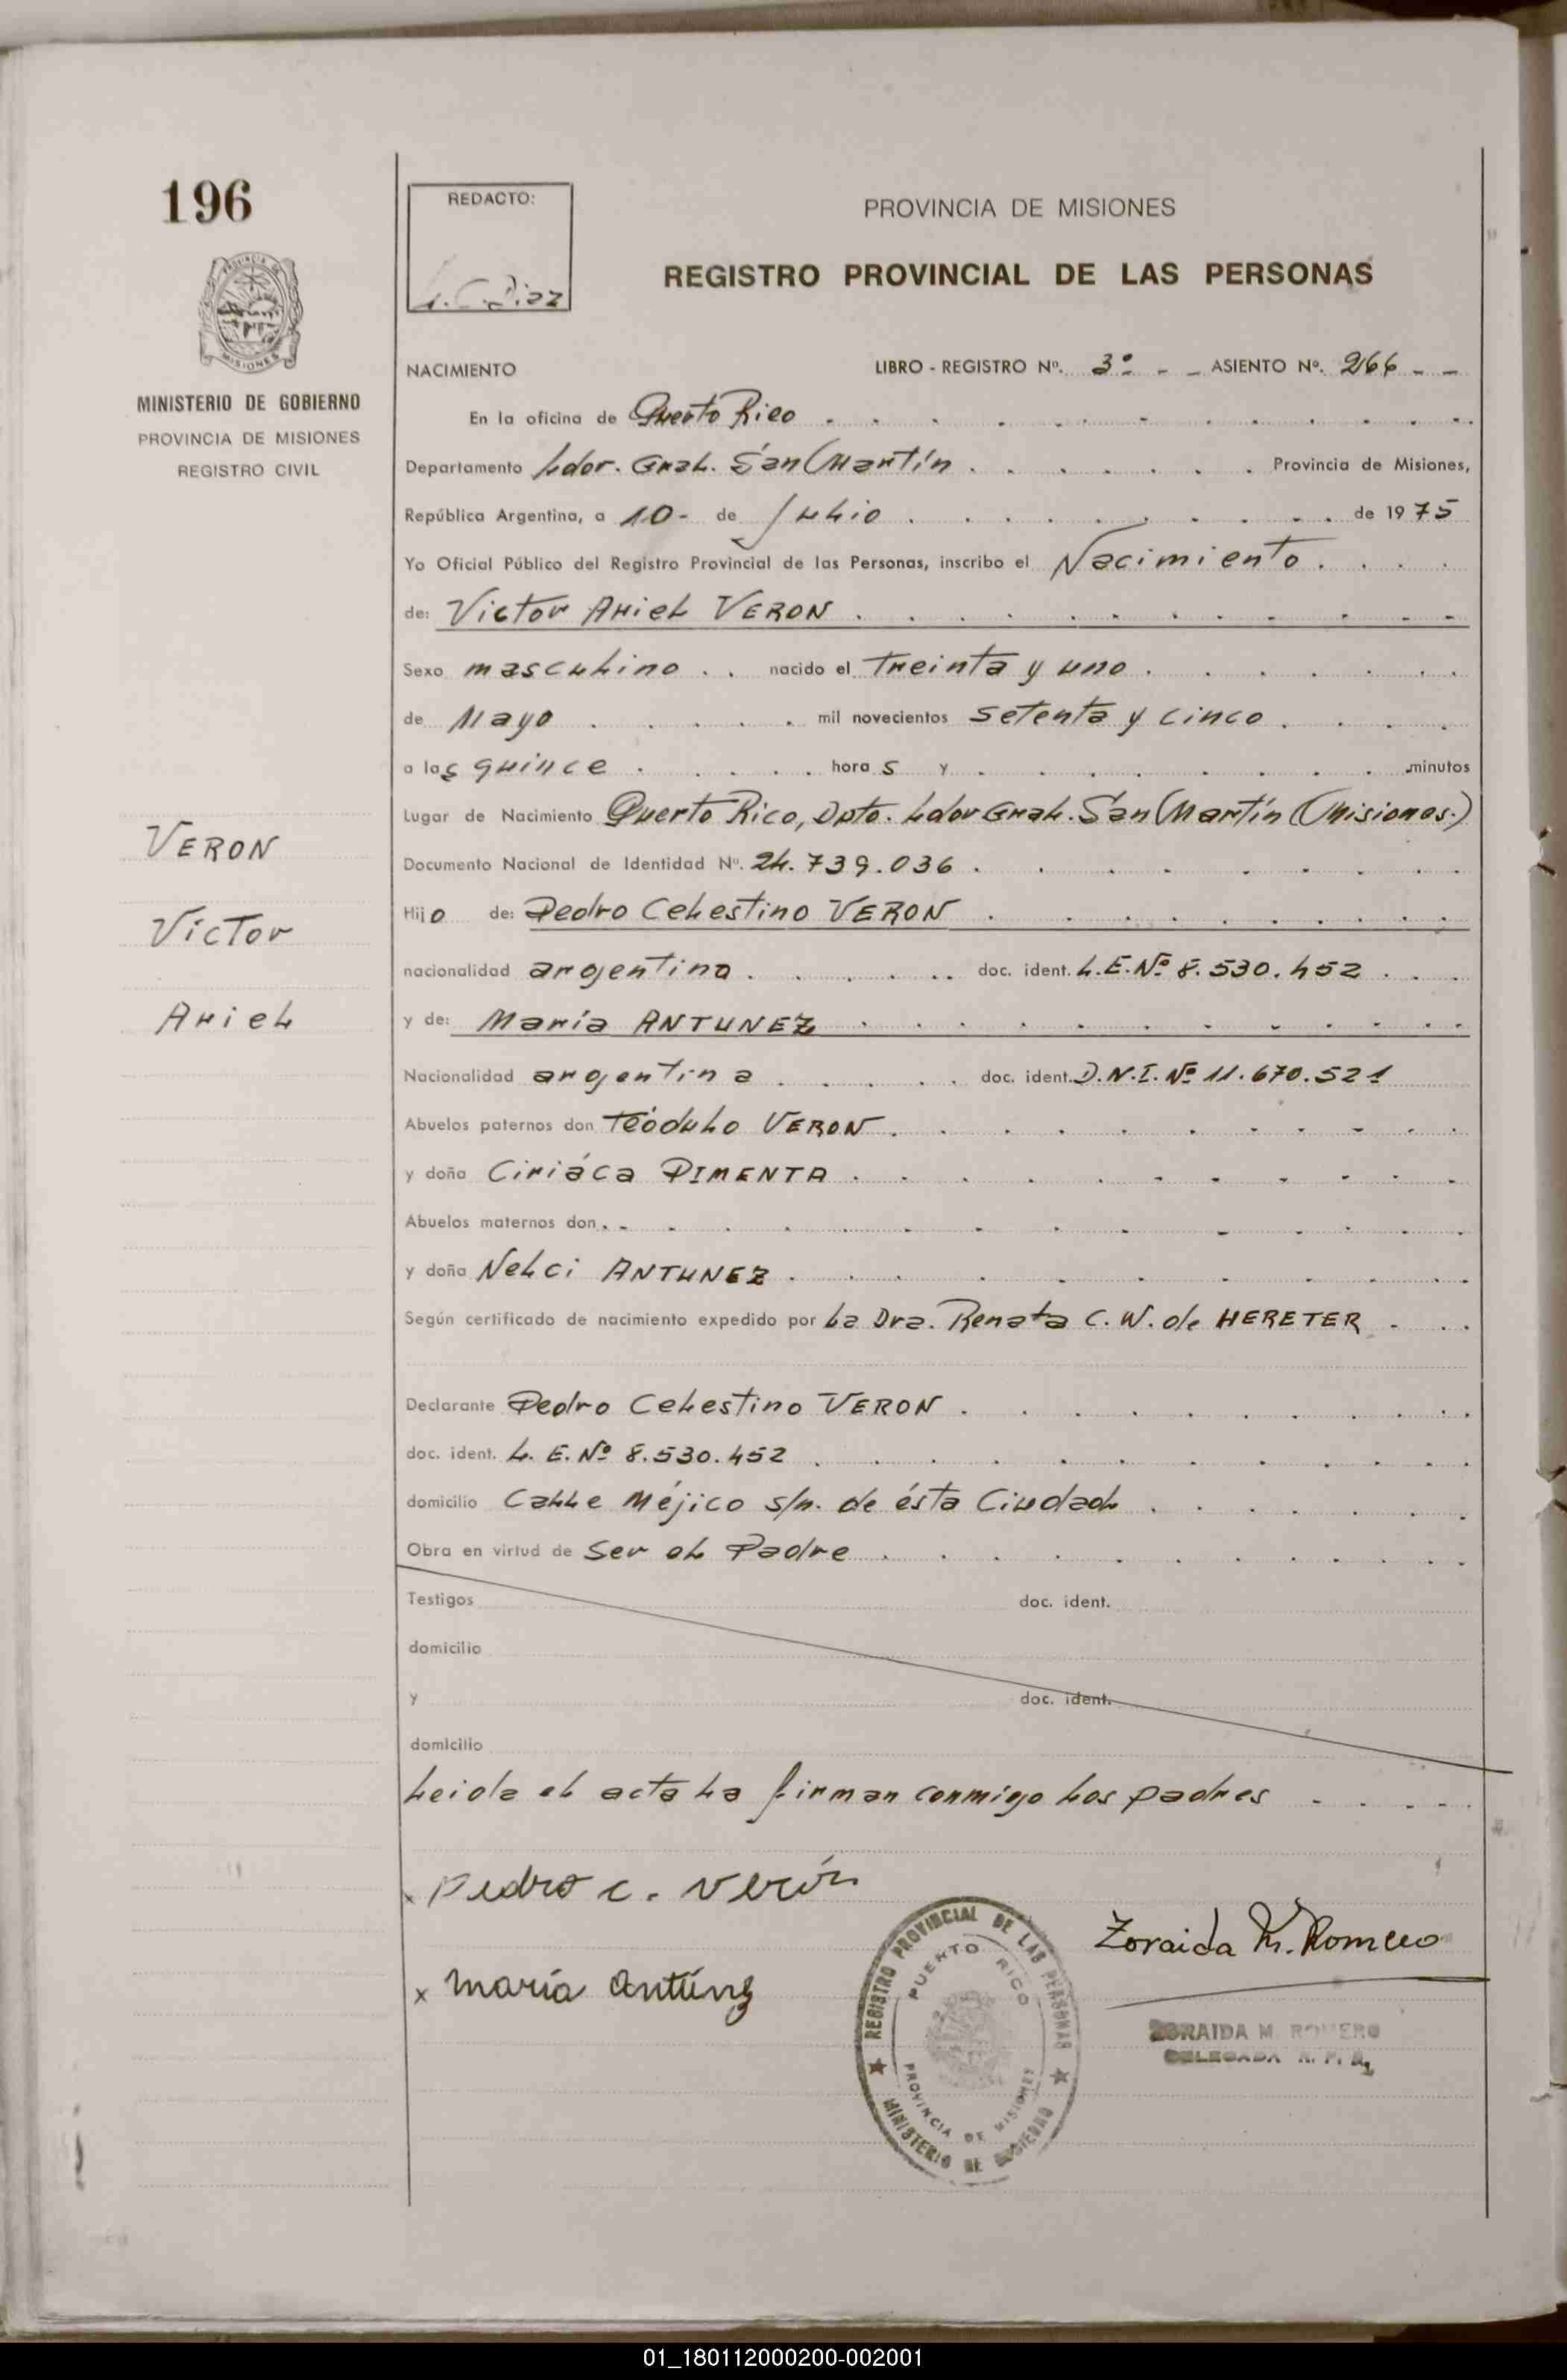 196
REDACTO:
G. C. Diaz
PROVINCIA DE MISIONES
REGISTRO PROVINCIAL DE LAS PERSONAS
MISIONES
MINISTERIO DE GOBIERNO
PROVINCIA DE MISIONES
REGISTRO CIVIL
NACIMIENTO LIBRO - REGISTRO Nº. 3º - - ASIENTO Nº. 266 - -
En la oficina de Puerto Rico
Departamento Ldor. Gral. San Martín Provincia de Misiones,
República Argentina, a 10- de Julio de 1975
Yo Oficial Público del Registro Provincial de las Personas, inscribo el Nacimiento
de: Victor Ariel VERON
Sexo masculino nacido el treinta y uno
de Mayo mil novecientos setenta y cinco
a las quince horas y minutos
Lugar de Nacimiento Puerto Rico, Dpto. Ldor Gral. San Martín (Misiones.)
Documento Nacional de Identidad Nº. 24.739.036
Hijo de: Pedro Celestino VERON
nacionalidad argentino doc. ident. L.E.Nº 8.530.452
y de: María ANTUNEZ
Nacionalidad argentina doc. ident. D.N.I. Nº 11.670.521
Abuelos paternos don Teódulo VERON
y doña Ciriáca PIMENTA
Abuelos maternos don
y doña Nelci ANTUNEZ
Según certificado de nacimiento expedido por la Dra. Renata C. W. de HERETER
Declarante Pedro Celestino VERON
doc. ident. L. E. Nº 8.530.452
domicilio Calle Méjico s/n. de ésta Ciudad
Obra en virtud de ser el Padre
Testigos doc. ident.
domicilio
y doc. ident.
domicilio
Leida el acta la firman conmigo los padres
VERON
Víctor
Ariel
x Pedro C. Verón
x María Antúnez
Zoraida M. Romero
ZORAIDA M. ROMERO
DELEGADA R. P. P.
REGISTRO PROVINCIAL DE LAS PERSONAS
PUERTO RICO
PROVINCIA DE MISIONES
MINISTERIO DE GOBIERNO
01_180112000200-002001